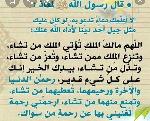 قال رسول الله ﷺ لمعاذ :
ألا أعلمك دعاء تدعو به لو كان عليك
مثل جبل أحد دينا لأداه الله عنك؛
اللهم مالك الملك تؤتي الملك من تشاء،
وتنزع الملك ممن تشاء، وتعز من تشاء،
وتذل من تشاء، بيدك الخير إنك
على كل شيء قدير، رحمن الدنيا
والآخرة ورحيمهما، تعطيهما من تشاء،
وتمنع منهما من تشاء، ارحمني رحمة
تغنيني بها عن رحمة من سواك.